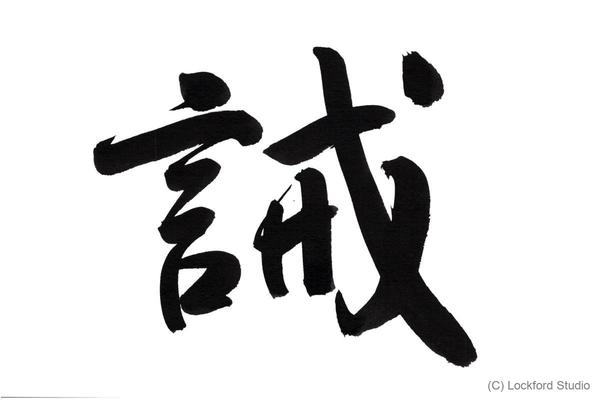 誡
(C) Lockford Studio